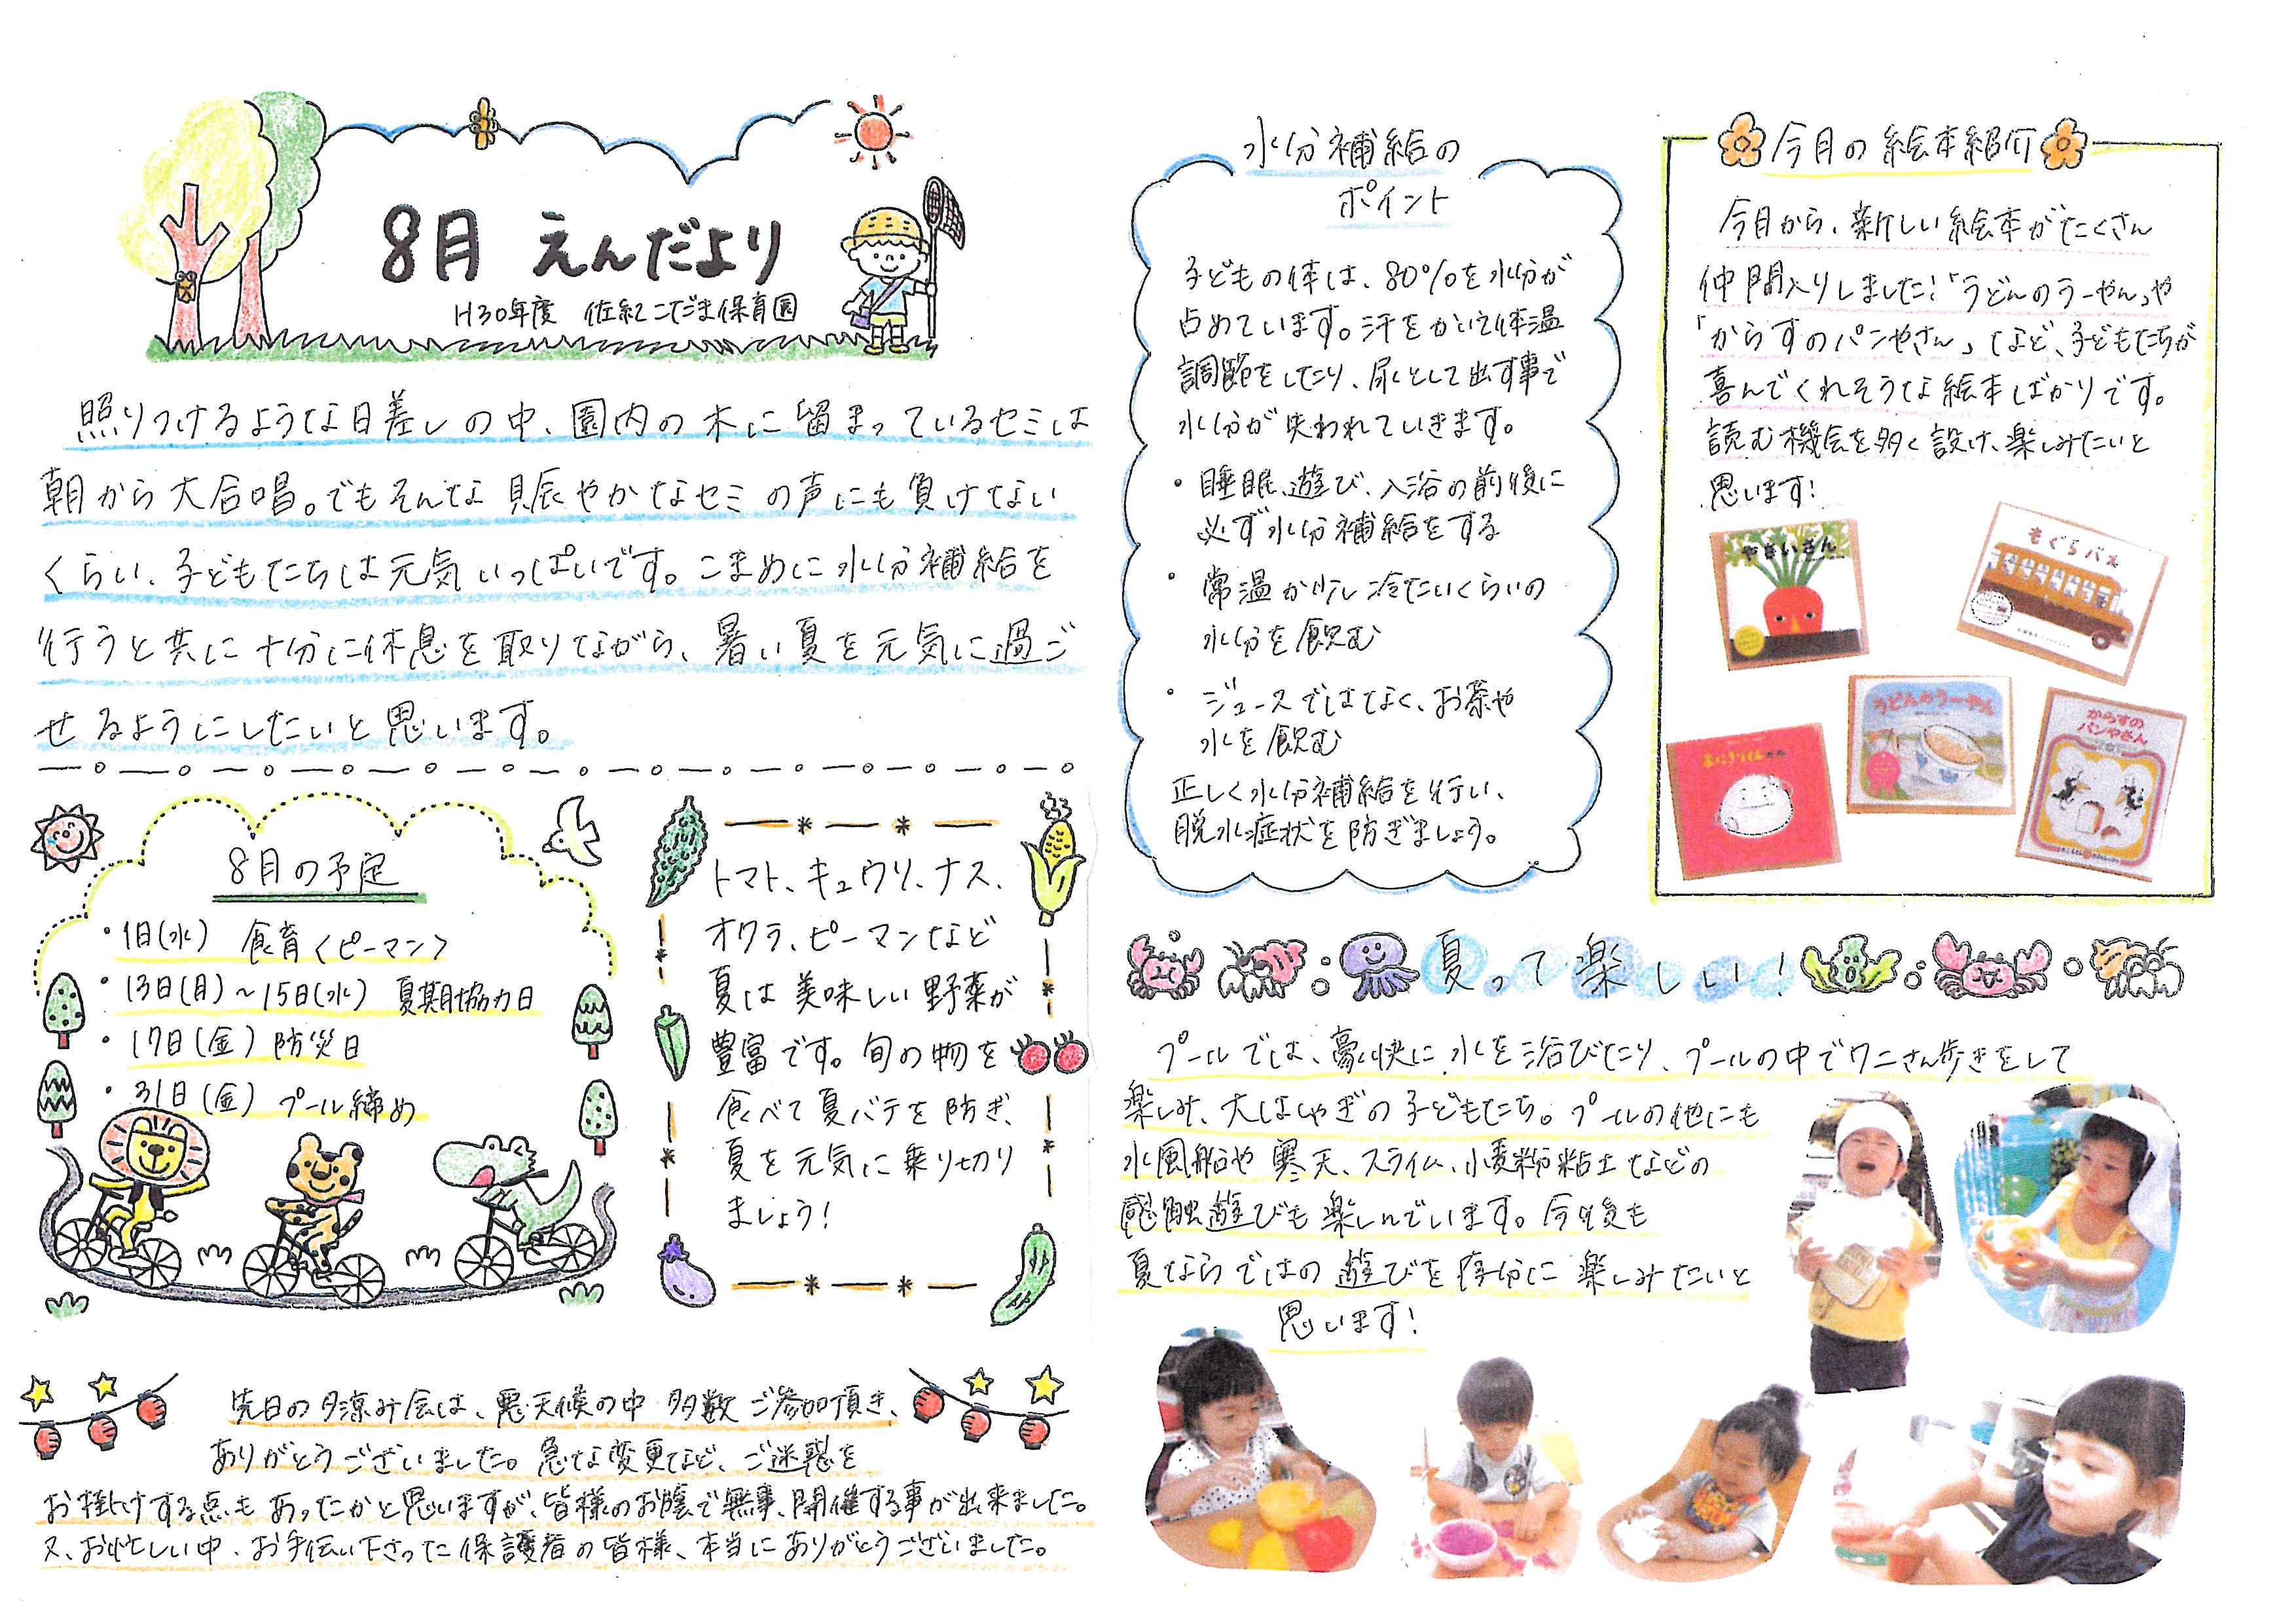 8月 えんだより
H30年度 佐紀こだま保育園
照りつけるような日差しの中、園内の木に留まっているセミは
朝から大合唱。でもそんな賑やかなセミの声にも負けない
くらい、子どもたちは元気いっぱいです。こまめに水分補給を
行うと共に十分に休息を取りながら、暑い夏を元気に過ご
せるようにしたいと思います。
8月の予定
・1日(水) 食育〈ピーマン〉
・13日(月)～15日(水) 夏期協力日
・17日(金) 防災日
・31日(金) プール締め
トマト、キュウリ、ナス、
オクラ、ピーマンなど
夏は美味しい野菜が
豊富です。旬の物を
食べて夏バテを防ぎ、
夏を元気に乗り切り
ましょう!
先日の夕涼み会は、悪天候の中 多数ご参加頂き、
ありがとうございました。急な変更など、ご迷惑を
お掛けする点もあったかと思いますが、皆様のお陰で無事、開催する事が出来ました。
又、お忙しい中、お手伝い下さった保護者の皆様、本当にありがとうございました。
水分補給の
ポイント
子どもの体は、80%を水分が
占めています。汗をかいて体温
調節をしたり、尿として出す事で
水分が失われていきます。
・睡眠、遊び、入浴の前後に
必ず水分補給をする
・常温か少し冷たいくらいの
水分を飲む
・ジュースではなく、お茶や
水を飲む
正しく水分補給を行い、
脱水症状を防ぎましょう。
今月の絵本紹介
今月から、新しい絵本がたくさん
仲間入りしました!「うどんのうーやん」や
「からすのパンやさん」など、子どもたちが
喜んでくれそうな絵本ばかりです。
読む機会を多く設け、楽しみたいと
思います!
やさいさん
もぐらバス
おにぎりくんがね
うどんのうーやん
からすの
パンやさん
夏って楽しい!
プールでは、豪快に水を浴びたり、プールの中でワニさん歩きをして
楽しみ、大はしゃぎの子どもたち。プールの他にも
水風船や寒天、スライム、小麦粉粘土などの
感触遊びも楽しんでいます。今後も
夏ならではの遊びを存分に楽しみたいと
思います!